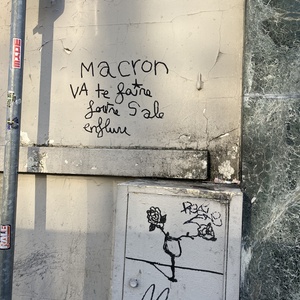 Macron
VA te faire
foutre Sale
enflure